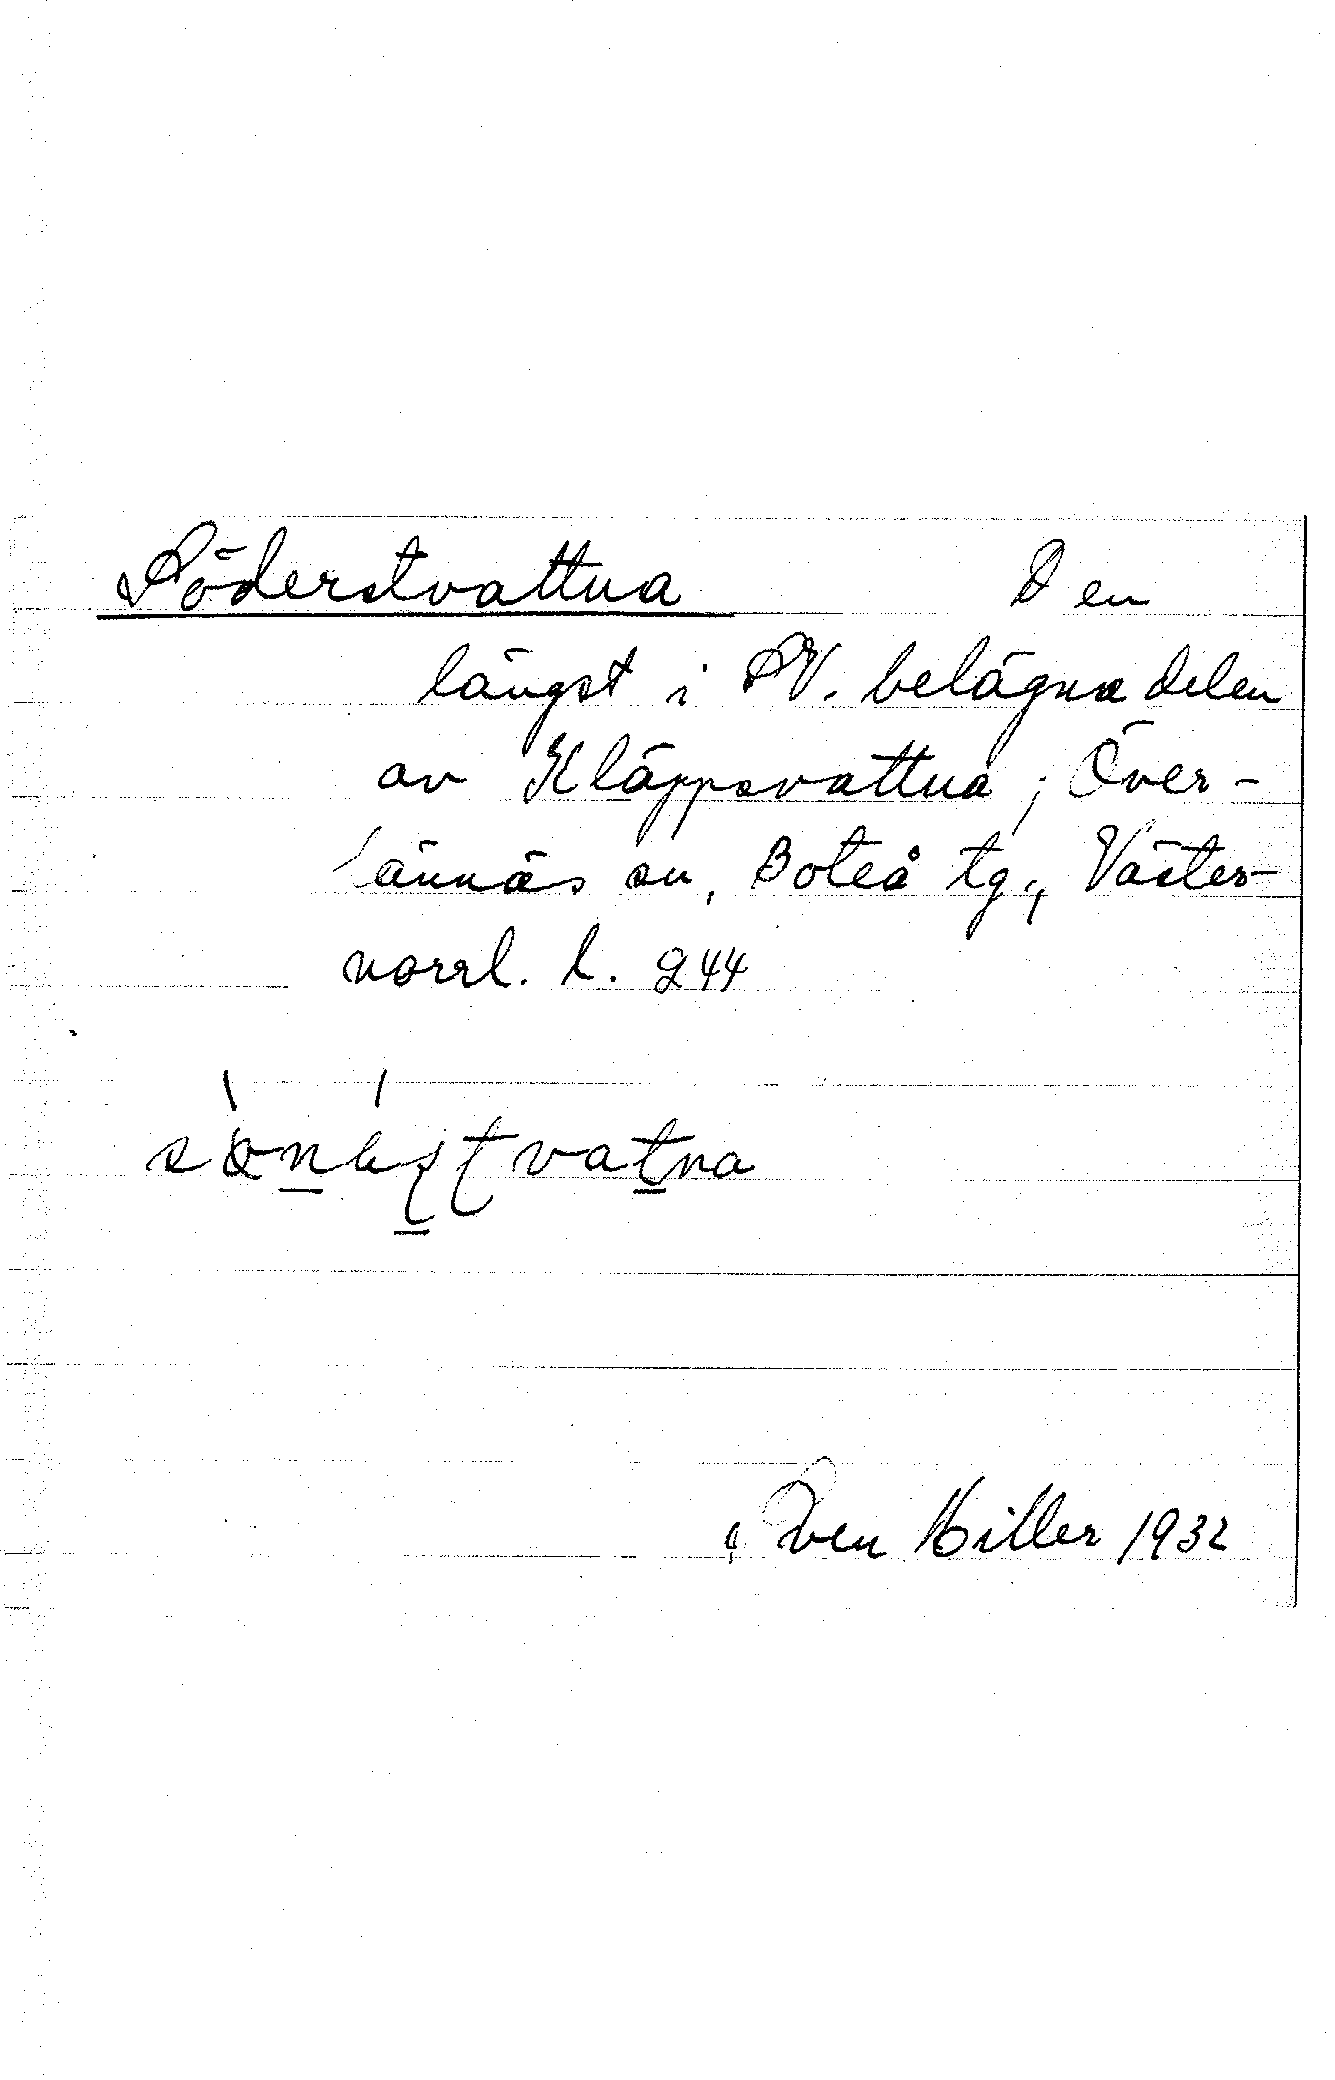 Söderstvattna Den
längst i SV. belägna delen
av Kläppsvattna; Över-
lännäs sn, Boteå tg., Väster-
norrl. l. 944
Sven Hiller 1932